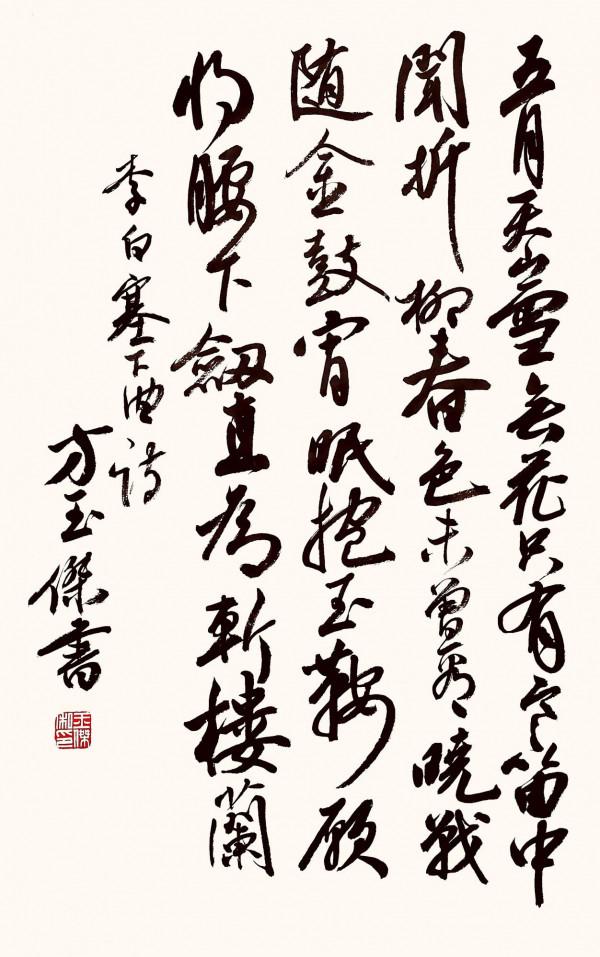 五月天山雪無花只有寒笛中
聞折柳春色未曾看曉戰
随金鼓宵眠抱玉鞍願
將腰下劒直為斬樓蘭
李白塞下曲詩
方玉傑書
玉傑私印